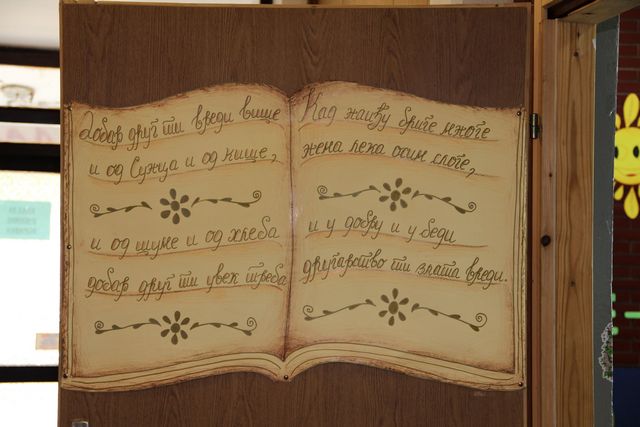 Добар друг ти вреди више
и од Сунца и од кише,
и од шуме и од хлеба
добар друг ти увек треба
Кад наиђу бриге многе
нема лека осим слоге,
и у добру и у беди
другарство ти злата вреди.